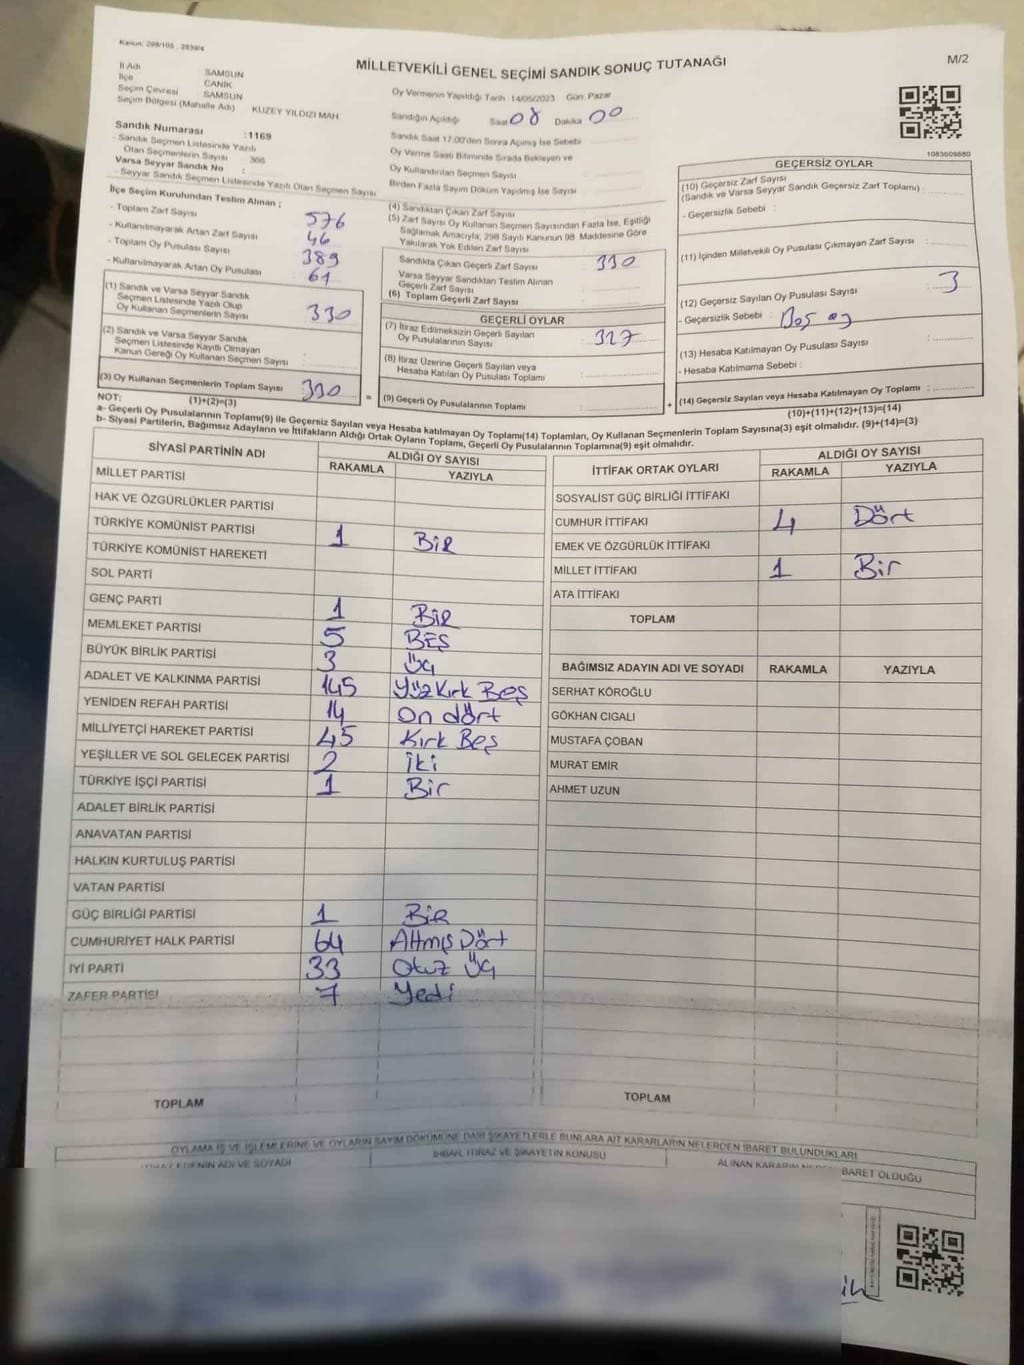 Kanun: 298/105 , 2839/4
MİLLETVEKİLİ GENEL SEÇİMİ SANDIK SONUÇ TUTANAĞI
M/2
İl Adı SAMSUN
İlçe CANİK
Seçim Çevresi SAMSUN
Seçim Bölgesi (Mahalle Adı) KUZEY YILDIZI MAH
Sandık Numarası :1169
- Sandık Seçmen Listesinde Yazılı
Olan Seçmenlerin Sayısı 366
Varsa Seyyar Sandık No :
- Seyyar Sandık Seçmen Listesinde Yazılı Olan Seçmen Sayısı
İlçe Seçim Kurulundan Teslim Alınan ;
- Toplam Zarf Sayısı 576
- Kullanılmayarak Artan Zarf Sayısı 46
- Toplam Oy Pusulası Sayısı 389
- Kullanılmayarak Artan Oy Pusulası 61
(1) Sandık ve Varsa Seyyar Sandık
Seçmen Listesinde Yazılı Olup
Oy Kullanan Seçmenlerin Sayısı 330
(2) Sandık ve Varsa Seyyar Sandık
Seçmen Listesinde Kayıtlı Olmayan
Kanun Gereği Oy Kullanan Seçmen Sayısı :
(3) Oy Kullanan Seçmenlerin Toplam Sayısı : 330
(1)+(2)=(3)
Oy Vermenin Yapıldığı Tarih 14/05/2023 Gün: Pazar
Sandığın Açıldığı Saat 08 Dakika 00
Sandık Saat 17:00'den Sonra Açılmış İse Sebebi
Oy Verme Saati Bitiminde Sırada Bekleyen ve
Oy Kullandırılan Seçmen Sayısı
Birden Fazla Sayım Döküm Yapılmış İse Sayısı
(4) Sandıktan Çıkan Zarf Sayısı
(5) Zarf Sayısı Oy Kullanan Seçmen Sayısından Fazla İse, Eşitliği
Sağlamak Amacıyla, 298 Sayılı Kanunun 98. Maddesine Göre
Yakılarak Yok Edilen Zarf Sayısı
Sandıkta Çıkan Geçerli Zarf Sayısı : 330
Varsa Seyyar Sandıktan Teslim Alınan
Geçerli Zarf Sayısı
(6) Toplam Geçerli Zarf Sayısı
GEÇERLİ OYLAR
(7) İtiraz Edilmeksizin Geçerli Sayılan
Oy Pusulalarının Sayısı : 327
(8) İtiraz Üzerine Geçerli Sayılan veya
Hesaba Katılan Oy Pusulası Toplamı
= (9) Geçerli Oy Pusulalarının Toplamı +
1083609880
GEÇERSİZ OYLAR
(10) Geçersiz Zarf Sayısı
(Sandık ve Varsa Seyyar Sandık Geçersiz Zarf Toplamı)
- Geçersizlik Sebebi :
(11) İçinden Milletvekili Oy Pusulası Çıkmayan Zarf Sayısı
(12) Geçersiz Sayılan Oy Pusulası Sayısı : 3
- Geçersizlik Sebebi : Boş oy
(13) Hesaba Katılmayan Oy Pusulası Sayısı
- Hesaba Katılmama Sebebi :
(14) Geçersiz Sayılan veya Hesaba Katılmayan Oy Toplamı :
(10)+(11)+(12)+(13)=(14)
NOT:
a- Geçerli Oy Pusulalarının Toplamı(9) ile Geçersiz Sayılan veya Hesaba katılmayan Oy Toplamı(14) Toplamları, Oy Kullanan Seçmenlerin Toplam Sayısına(3) eşit olmalıdır. (9)+(14)=(3)
b- Siyasi Partilerin, Bağımsız Adayların ve İttifakların Aldığı Ortak Oyların Toplamı, Geçerli Oy Pusulalarının Toplamına(9) eşit olmalıdır.
SİYASİ PARTİNİN ADI ALDIĞI OY SAYISI
RAKAMLA YAZIYLA
MİLLET PARTİSİ
HAK VE ÖZGÜRLÜKLER PARTİSİ
TÜRKİYE KOMÜNİST PARTİSİ 1 BİR
TÜRKİYE KOMÜNİST HAREKETİ
SOL PARTİ
GENÇ PARTİ 1 BİR
MEMLEKET PARTİSİ 5 BEŞ
BÜYÜK BİRLİK PARTİSİ 3 Üç
ADALET VE KALKINMA PARTİSİ 145 YüzKırk Beş
YENİDEN REFAH PARTİSİ 14 On dört
MİLLİYETÇİ HAREKET PARTİSİ 45 Kırk Beş
YEŞİLLER VE SOL GELECEK PARTİSİ 2 İki
TÜRKİYE İŞÇİ PARTİSİ 1 Bir
ADALET BİRLİK PARTİSİ
ANAVATAN PARTİSİ
HALKIN KURTULUŞ PARTİSİ
VATAN PARTİSİ
GÜÇ BİRLİĞİ PARTİSİ 1 BİR
CUMHURİYET HALK PARTİSİ 64 Altmış Dört
İYİ PARTİ 33 Otuz Üç
ZAFER PARTİSİ 7 Yedi
TOPLAM
İTTİFAK ORTAK OYLARI ALDIĞI OY SAYISI
RAKAMLA YAZIYLA
SOSYALİST GÜÇ BİRLİĞİ İTTİFAKI
CUMHUR İTTİFAKI 4 Dört
EMEK VE ÖZGÜRLÜK İTTİFAKI
MİLLET İTTİFAKI 1 Bir
ATA İTTİFAKI
TOPLAM
BAĞIMSIZ ADAYIN ADI VE SOYADI RAKAMLA YAZIYLA
SERHAT KÖROĞLU
GÖKHAN CIGALI
MUSTAFA ÇOBAN
MURAT EMİR
AHMET UZUN
TOPLAM
OYLAMA İŞ VE İŞLEMLERİNE VE OYLARIN SAYIM DÖKÜMÜNE DAİR ŞİKAYETLERLE BUNLARA AİT KARARLARIN NELERDEN İBARET BULUNDUKLARI
İTİRAZ EDENİN ADI VE SOYADI İHBAR, İTİRAZ VE ŞİKAYETİN KONUSU ALINAN KARARIN İBARET OLDUĞU